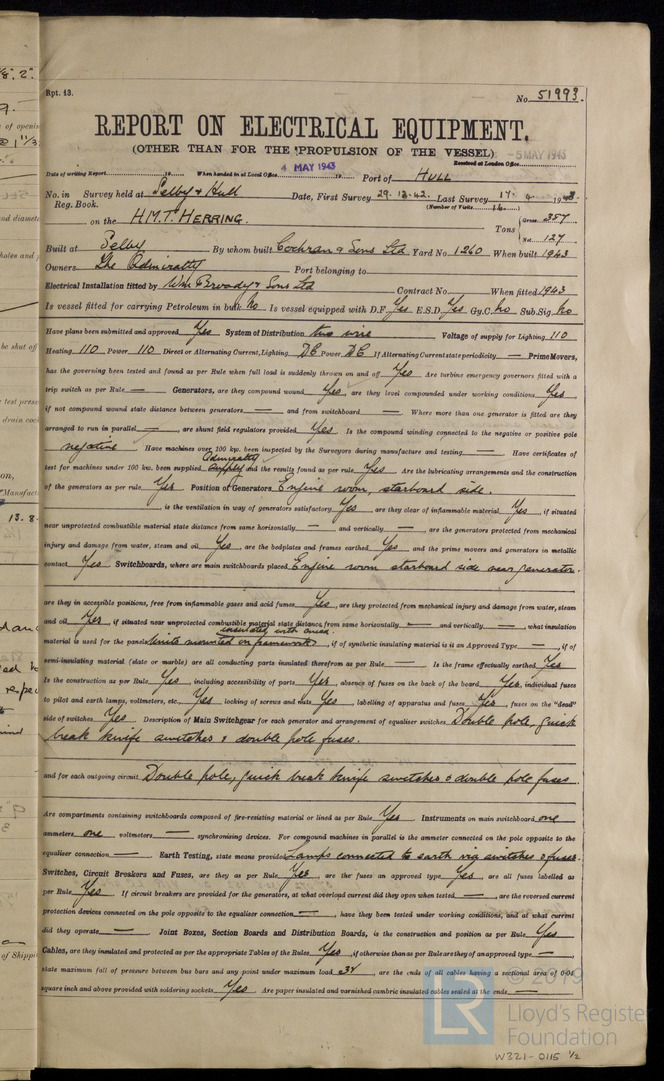 Rpt. 13.
No. 51993.
REPORT ON ELECTRICAL EQUIPMENT.
(OTHER THAN FOR THE PROPULSION OF THE VESSEL)
5 MAY 1943
Received at London Office
Date of writing Report 19 When handed in at Local Office 4 MAY 1943 19 Port of HULL
No. in Survey held at Selby & Hull Date, First Survey 29.12.42. Last Survey 17. 4. 1943.
Reg. Book. (Number of Visits 16.)
on the H.M.T. HERRING. Tons Gross 357
Net 127
Built at Selby By whom built Cochran & Sons Ltd Yard No. 1260 When built 1943
Owners The Admiralty Port belonging to
Electrical Installation fitted by Wm Broady & Sons Ltd Contract No. When fitted 1943
Is vessel fitted for carrying Petroleum in bulk No Is vessel equipped with D.F. Yes E.S.D. Yes Gy.C. No Sub.Sig. No
Have plans been submitted and approved Yes System of Distribution two wire Voltage of supply for Lighting 110
Heating 110 Power 110 Direct or Alternating Current, Lighting DC Power DC If Alternating Current state periodicity — Prime Movers,
has the governing been tested and found as per Rule when full load is suddenly thrown on and off Yes Are turbine emergency governors fitted with a
trip switch as per Rule — Generators, are they compound wound Yes, are they level compounded under working conditions Yes,
if not compound wound state distance between generators — and from switchboard — Where more than one generator is fitted are they
arranged to run in parallel —, are shunt field regulators provided Yes. Is the compound winding connected to the negative or positive pole
negative Have machines over 100 kw. been inspected by the Surveyors during manufacture and testing — Have certificates of
test for machines under 100 kw. been supplied Admiralty supply and the results found as per rule Yes Are the lubricating arrangements and the construction
of the generators as per rule Yes Position of Generators Engine room, starboard side.
, is the ventilation in way of generators satisfactory Yes, are they clear of inflammable material Yes, if situated
near unprotected combustible material state distance from same horizontally — and vertically —, are the generators protected from mechanical
injury and damage from water, steam and oil Yes, are the bedplates and frames earthed Yes and the prime movers and generators in metallic
contact Yes Switchboards, where are main switchboards placed Engine room starboard side near generator.
are they in accessible positions, free from inflammable gases and acid fumes Yes, are they protected from mechanical injury and damage from water, steam
and oil Yes, if situated near unprotected combustible material state distance from same horizontally — and vertically —, what insulation
material is used for the panels Units mounted on framework insulated with, if of synthetic insulating material is it an Approved Type —, if of
semi-insulating material (slate or marble) are all conducting parts insulated therefrom as per Rule — Is the frame effectually earthed Yes
Is the construction as per Rule Yes, including accessibility of parts Yes, absence of fuses on the back of the board Yes, individual fuses
to pilot and earth lamps, voltmeters, etc., Yes locking of screws and nuts Yes, labelling of apparatus and fuses Yes, fuses on the "dead"
side of switches Yes. Description of Main Switchgear for each generator and arrangement of equaliser switches Double pole, quick
break knife switches & double pole fuses.
and for each outgoing circuit Double pole, quick break knife switches & double pole fuses
Are compartments containing switchboards composed of fire-resisting material or lined as per Rule Yes Instruments on main switchboard one
ammeters one voltmeters — synchronising devices. For compound machines in parallel is the ammeter connected on the pole opposite to the
equaliser connection — Earth Testing, state means provided Lamps connected to earth via switches & fuses.
Switches, Circuit Breakers and Fuses, are they as per Rule Yes, are the fuses an approved type Yes, are all fuses labelled as
per Rule Yes If circuit breakers are provided for the generators, at what overload current did they open when tested —, are the reversed current
protection devices connected on the pole opposite to the equaliser connection —, have they been tested under working conditions, and at what current
did they operate — Joint Boxes, Section Boards and Distribution Boards, is the construction and position as per Rule Yes
Cables, are they insulated and protected as per the appropriate Tables of the Rules Yes, if otherwise than as per Rule are they of an approved type —,
state maximum fall of pressure between bus bars and any point under maximum load 3V, are the ends of all cables having a sectional area of 0.04
square inch and above provided with soldering sockets Yes Are paper insulated and varnished cambric insulated cables sealed at the ends —
© 2019
LR
Lloyd's Register
Foundation
W321-0115 1/2